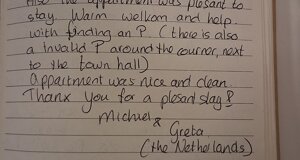 Also the appartment was plesant to
stay. Warm welkom and help
with finding an P. (there is also
a invalid P around the cournor, next
to the town hall)
Appartment was nice and clean.
Thank you for a plesant stay!
Michiel &
Greta
(the Netherlands)